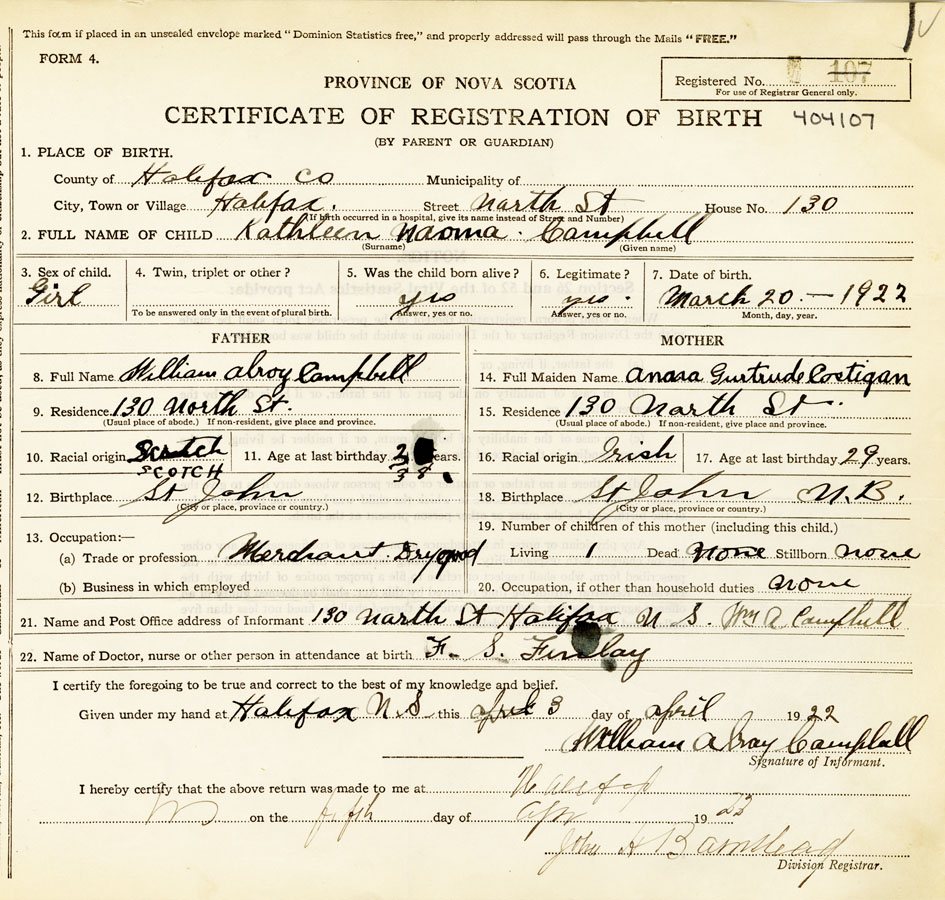 This form if placed in an unsealed envelope marked "Dominion Statistics free," and properly addressed will pass through the Mails "FREE."
FORM 4.
PROVINCE OF NOVA SCOTIA
Registered No. 107
For use of Registrar General only.
CERTIFICATE OF REGISTRATION OF BIRTH 404107
(BY PARENT OR GUARDIAN)
1. PLACE OF BIRTH.
County of Halifax Co Municipality of
City, Town or Village Halifax. Street North St House No. 130
(If birth occurred in a hospital, give its name instead of Street and Number)
2. FULL NAME OF CHILD Kathleen Naoma. Campbell
(Surname) (Given name)
3. Sex of child. 4. Twin, triplet or other? 5. Was the child born alive? 6. Legitimate? 7. Date of birth.
Girl yes yes. March 20. - 1922
To be answered only in the event of plural birth. Answer, yes or no. Answer, yes or no. Month, day, year.
FATHER MOTHER
8. Full Name William Alroy Campbell 14. Full Maiden Name Anasa Gurtrude Costigan
9. Residence. 130 North St. 15. Residence 130 North St.
(Usual place of abode.) If non-resident, give place and province. (Usual place of abode.) If non-resident, give place and province.
10. Racial origin Scotch 11. Age at last birthday years. 16. Racial origin Irish 17. Age at last birthday 29 years.
SCOTCH 34.
12. Birthplace St John 18. Birthplace St John N.B.
(City or place, province or country.) (City or place, province or country.)
13. Occupation:— 19. Number of children of this mother (including this child.)
(a) Trade or profession Merchant. Drygood Living 1 Dead None Stillborn none
(b) Business in which employed 20. Occupation, if other than household duties none
21. Name and Post Office address of Informant 130 North St Halifax N S. Wm A Campbell
22. Name of Doctor, nurse or other person in attendance at birth F. S. Finlay
I certify the foregoing to be true and correct to the best of my knowledge and belief.
Given under my hand at Halifax N.S. this April 3 day of April 1922
William Alroy Campbell
Signature of Informant.
I hereby certify that the above return was made to me at Halifax
NS on the fifth day of Apr 1922
John H Barnstead
Division Registrar.